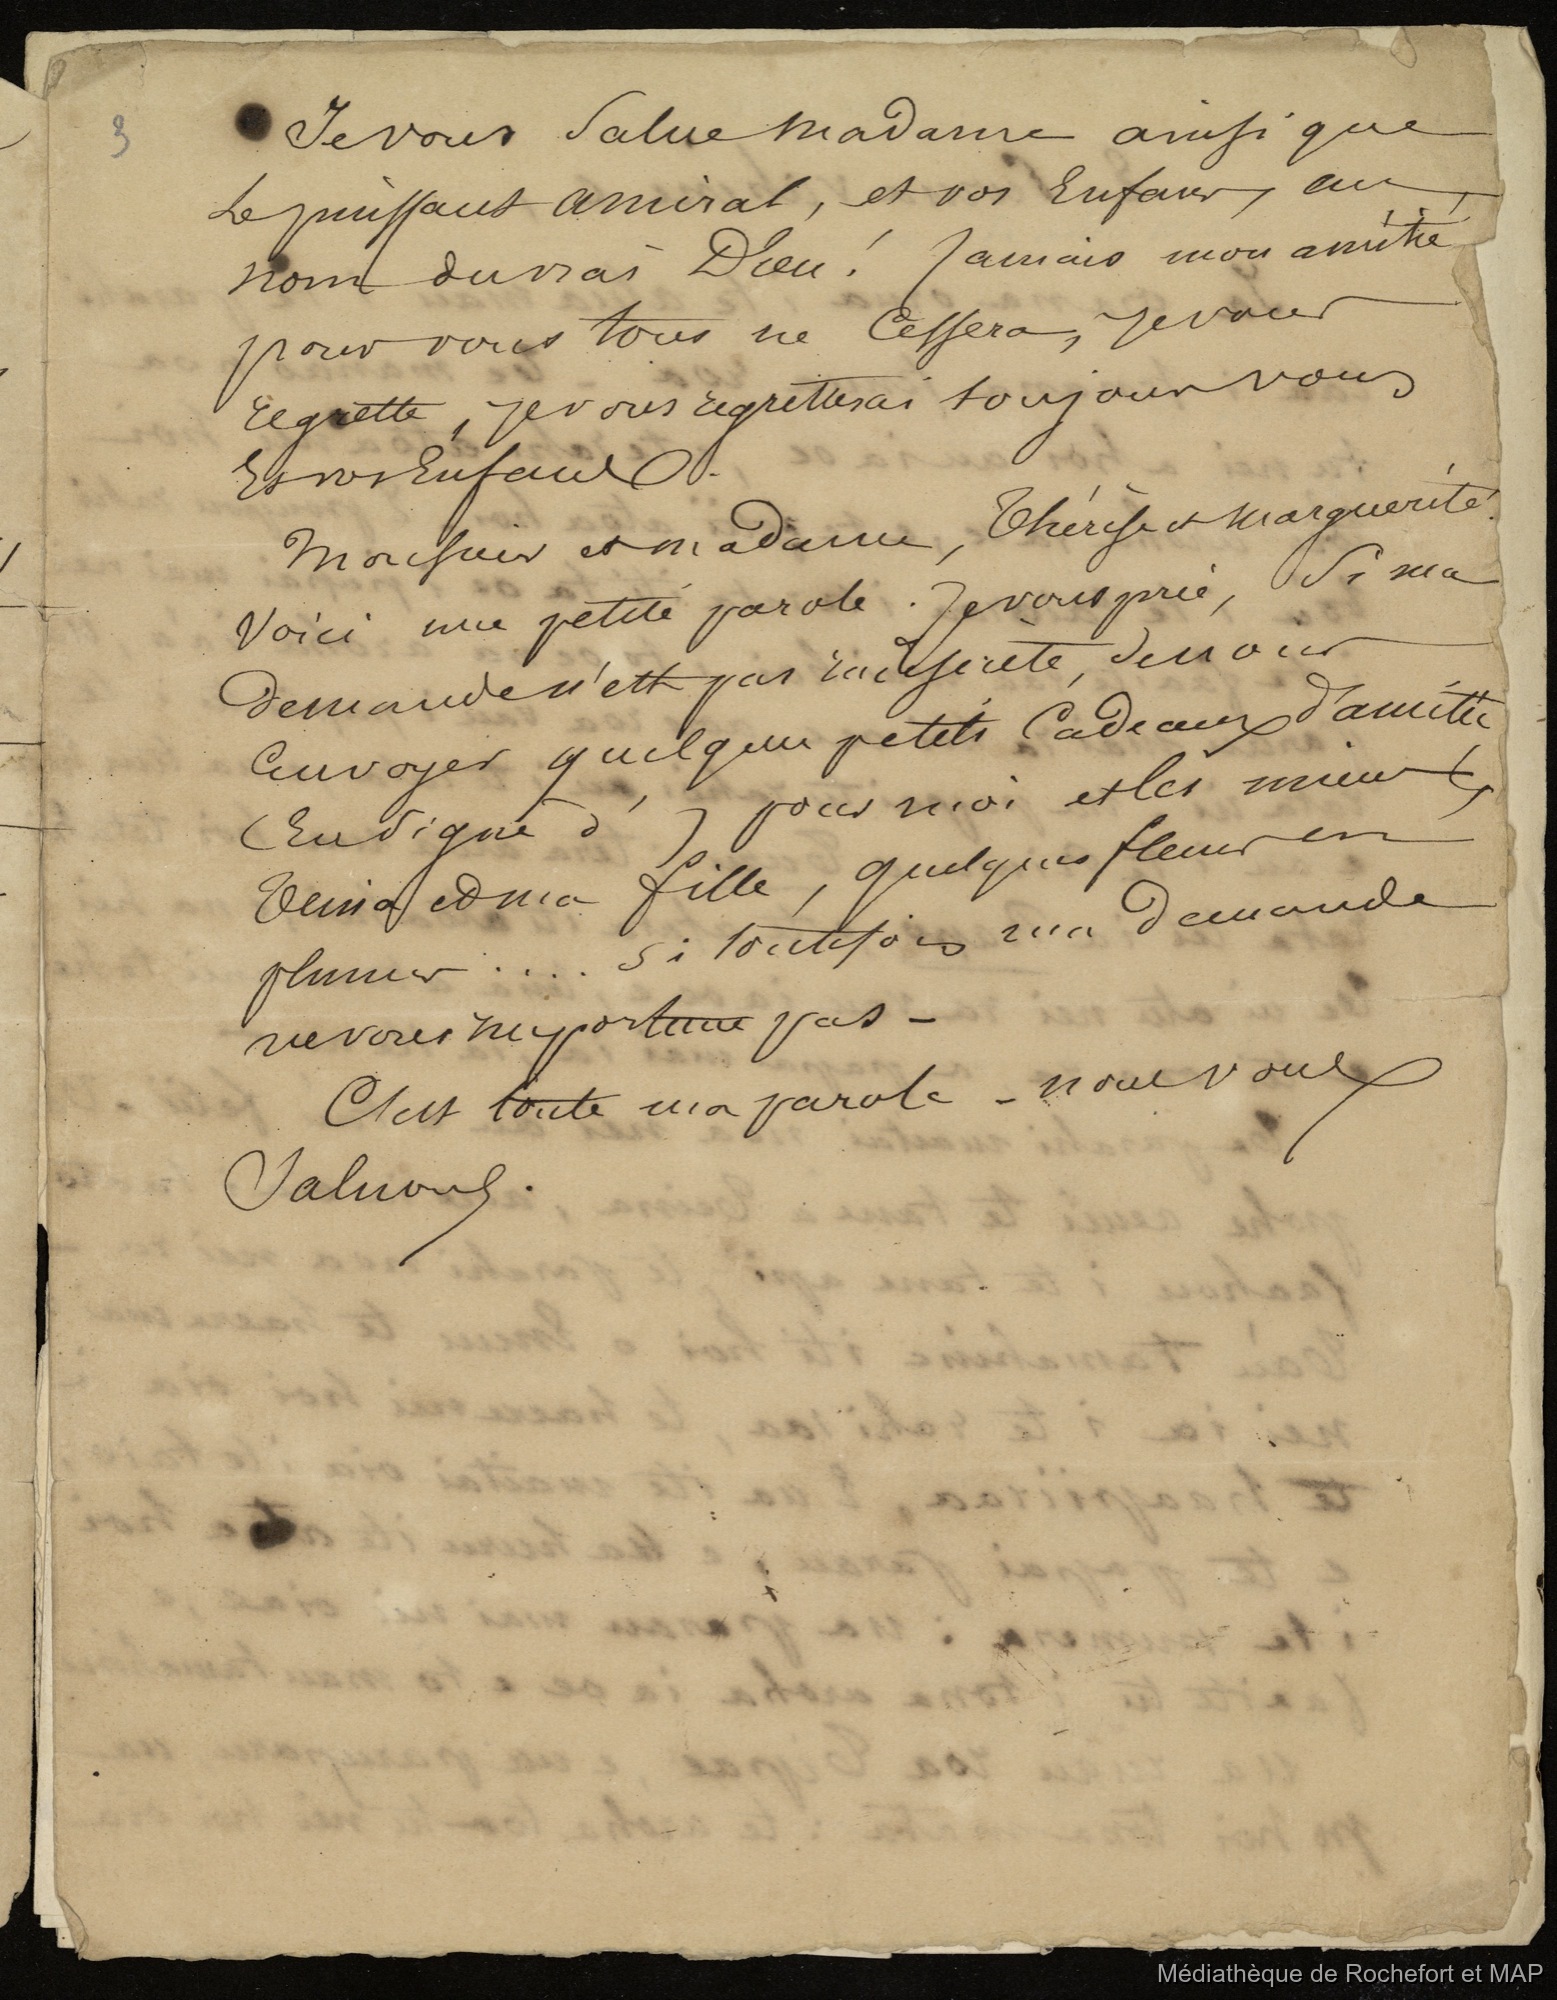 3
Je vous salue madame ainsi que
Le puissant amiral, et vos Enfants, au
nom du vrai Dieu! Jamais mon amitié
pour vous tous ne cessera, je vous
regrette, je vous regretterai toujours vous
Et vos Enfants.
Monsieur et madame, Thérèse et Marguerite
Voici une petite parole. Je vous prie, si ma
Demande n'est pas indiscrète, de nous
Envoyer quelques petits Cadeaux d'amitié
(En signe d' ) pour moi et les miens,
Teina et ma fille, quelques fleurs en
plumes ..... si toutefois ma demande
ne vous importune pas -
C'est toute ma parole - nous vous
Saluons.
Médiathèque de Rochefort et MAP